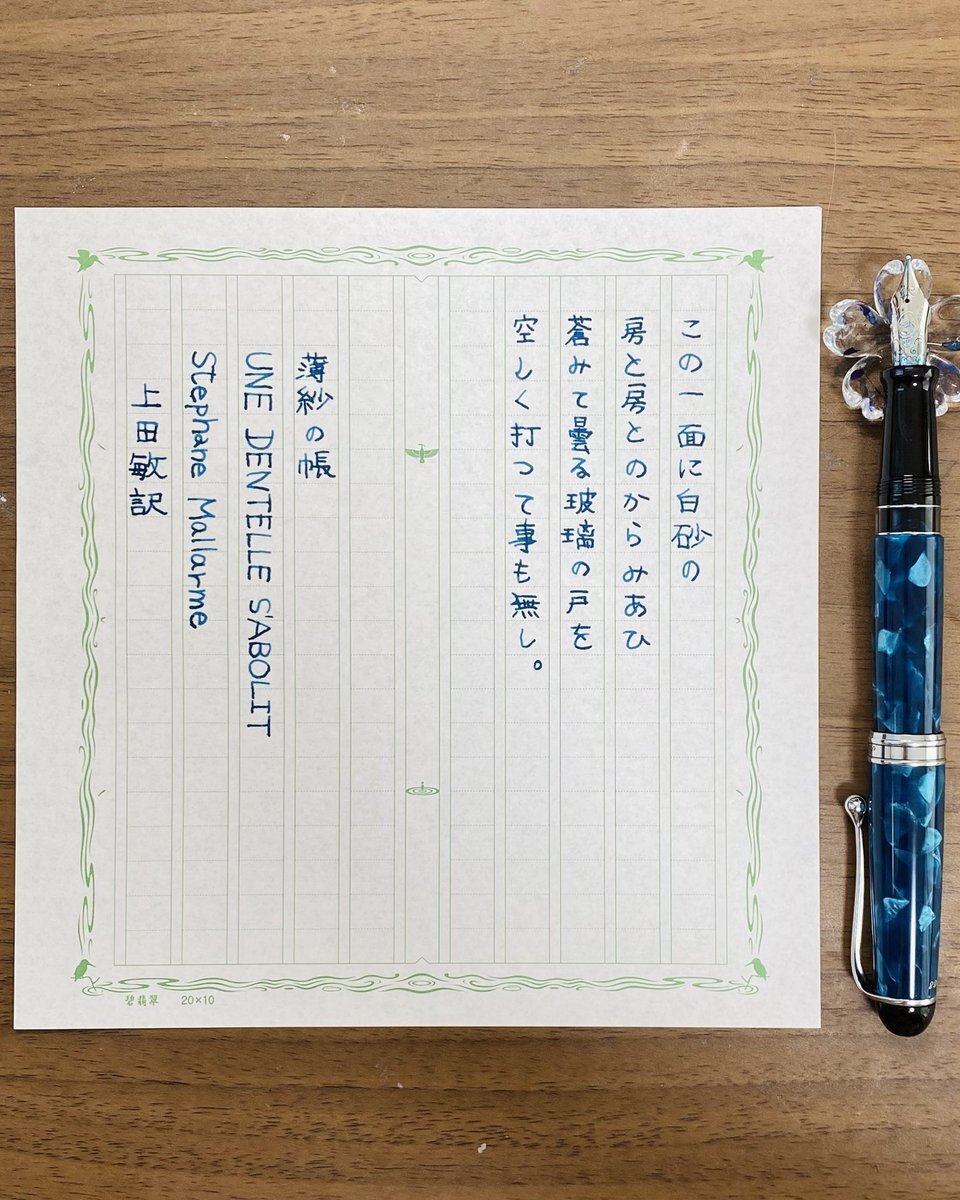 この一面に白砂の
房と房とのからみあひ
蒼みて曇る玻璃の戸を
空しく打つて事も無し。
薄紗の帳
UNE DENTELLE S'ABOLIT
Stephane Mallarme
上田敏訳
碧翡翠 20×10